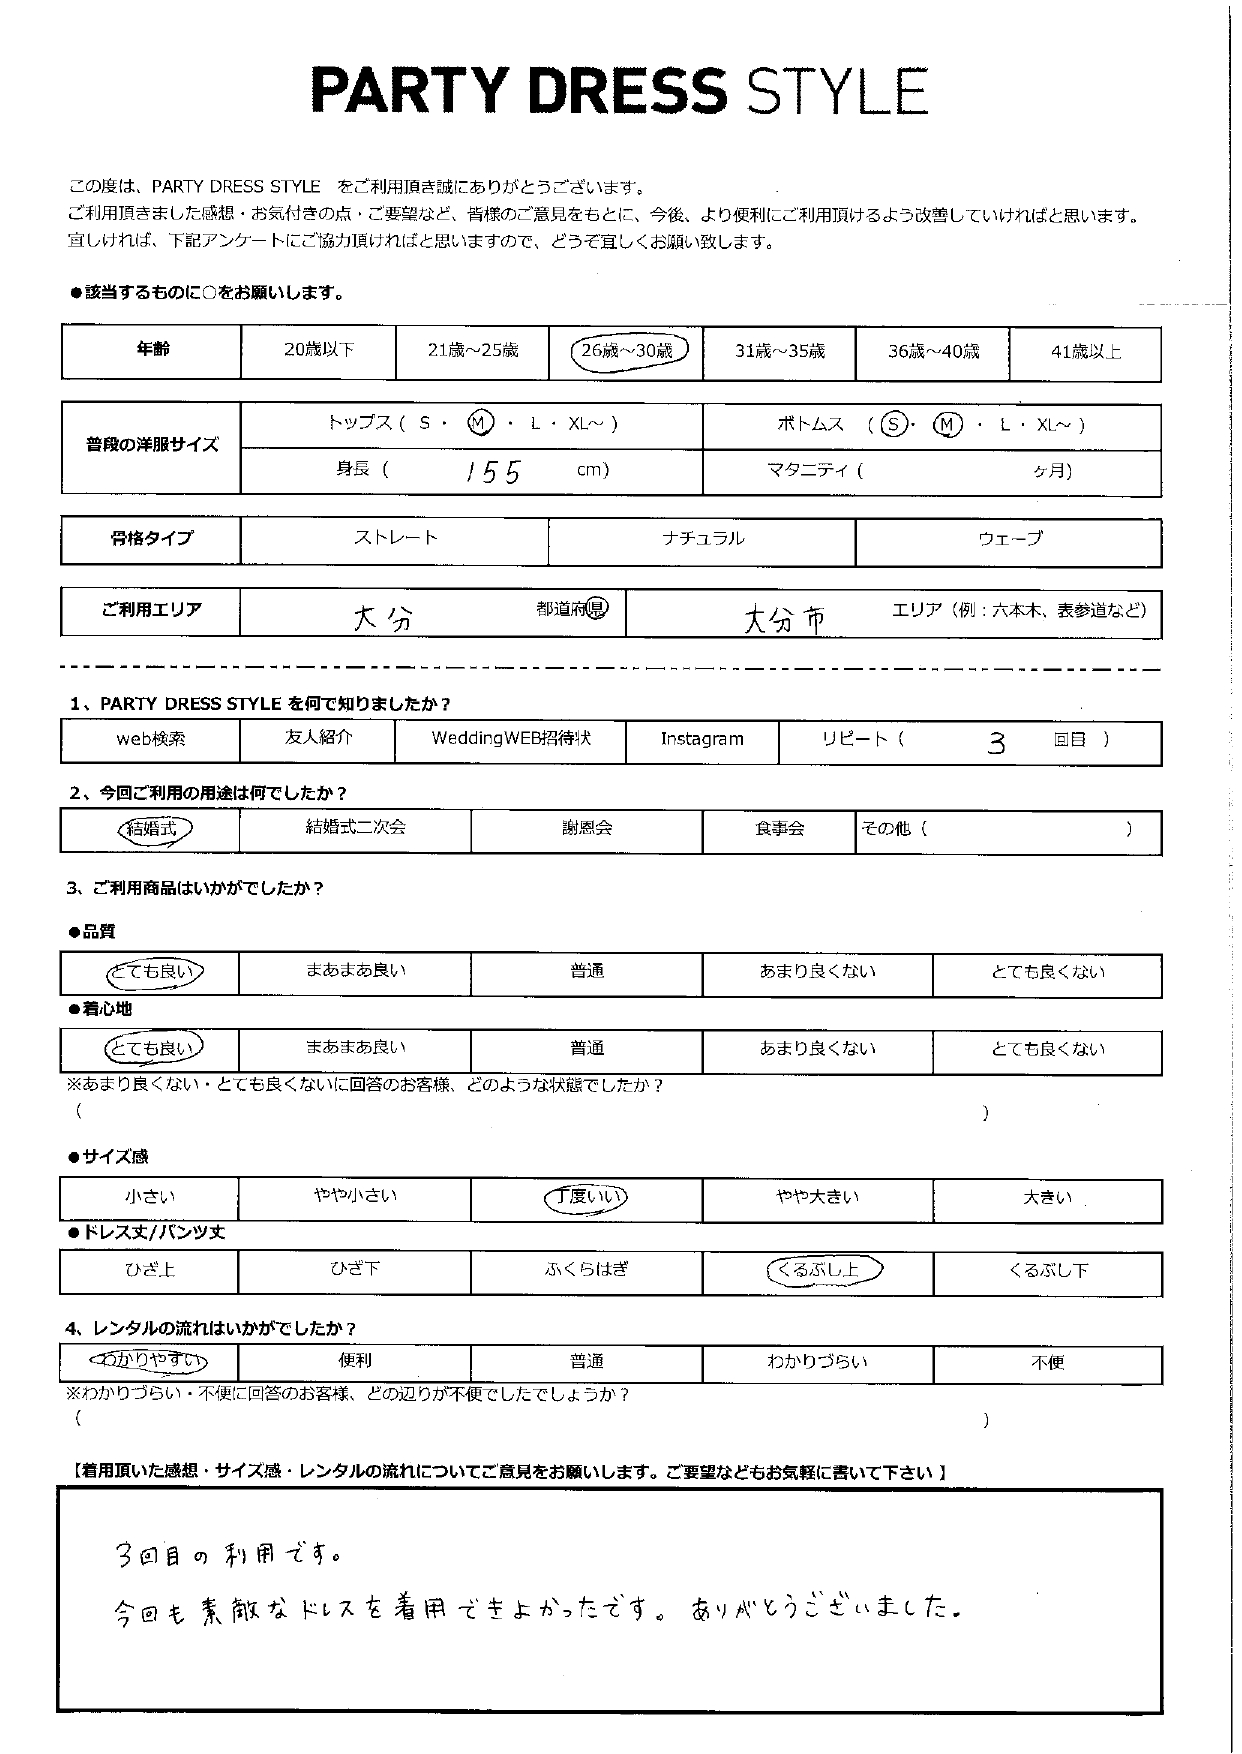 PARTY DRESS STYLE
この度は、PARTY DRESS STYLE をご利用頂き誠にありがとうございます。
ご利用頂きました感想・お気付きの点・ご要望など、皆様のご意見をもとに、今後、より便利にご利用頂けるよう改善していければと思います。
宜しければ、下記アンケートにご協力頂ければと思いますので、どうぞ宜しくお願い致します。
●該当するものに○をお願いします。
年齢 20歳以下 21歳～25歳 26歳～30歳 31歳～35歳 36歳～40歳 41歳以上
普段の洋服サイズ トップス ( S ・ M ・ L ・ XL～ ) ボトムス ( S ・ M ・ L ・ XL～ )
身長 ( 155 cm) マタニティ ( ヶ月)
骨格タイプ ストレート ナチュラル ウェーブ
ご利用エリア 大分 都道府県 大分市 エリア（例：六本木、表参道など）
1、PARTY DRESS STYLE を何で知りましたか？
web検索 友人紹介 WeddingWEB招待状 Instagram リピート ( 3 回目 )
2、今回ご利用の用途は何でしたか？
結婚式 結婚式二次会 謝恩会 食事会 その他 ( )
3、ご利用商品はいかがでしたか？
●品質
とても良い まあまあ良い 普通 あまり良くない とても良くない
●着心地
とても良い まあまあ良い 普通 あまり良くない とても良くない
※あまり良くない・とても良くないに回答のお客様、どのような状態でしたか？
( )
●サイズ感
小さい やや小さい 丁度いい やや大きい 大きい
●ドレス丈/パンツ丈
ひざ上 ひざ下 ふくらはぎ くるぶし上 くるぶし下
4、レンタルの流れはいかがでしたか？
わかりやすい 便利 普通 わかりづらい 不便
※わかりづらい・不便に回答のお客様、どの辺りが不便でしたでしょうか？
( )
【着用頂いた感想・サイズ感・レンタルの流れについてご意見をお願いします。ご要望などもお気軽に書いて下さい】
3回目の利用です。
今回も素敵なドレスを着用できよかったです。ありがとうございました。